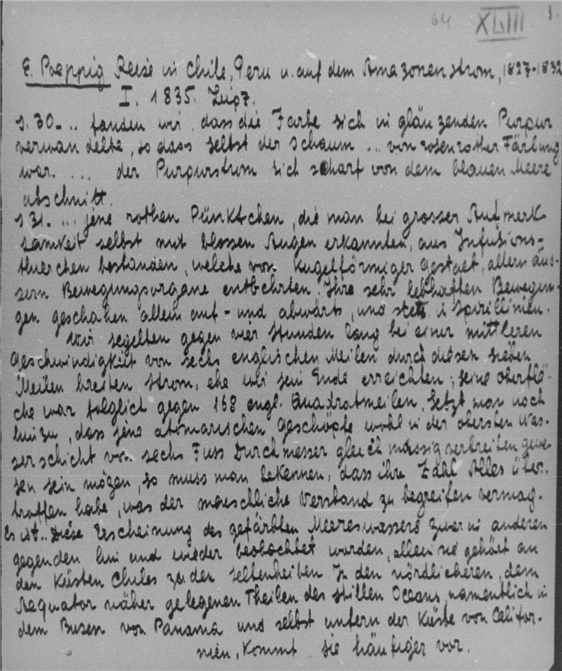 64 XLIII 1.
E. Poeppig Reise in Chile, Peru u. auf dem Amazonenstrom, 1827-1832
I. 1835. Leipz.
S. 30 ... fanden wir, dass die Farbe sich in glänzenden Purpur
verwandelte, so dass selbst der Schaum ... von rosenrother Färbung
war. ... der Purpurstrom sich scharf von dem blauen Meere
abschnitt.
S 31. ... jene rothen Pünktchen, die man bei grosser Aufmerk
samkeit selbst mit blossen Augen erkannten, aus Infusions-
thierchen bestanden, welche von kugelförmiger Gestalt, allein äus-
sern Bewegungsorgane entbehrten. Ihre sehr lebhaften Bewegun-
gen geschahen allein auf- und abwärts, und stets in Spirallinien.
Wir segelten gegen vier Stunden lang bei einer mittleren
Geschwindigkeit von sechs englischen Meilen durch diesen sieben
Meilen breiten Strom, ehe wir sein Ende erreichten; seine Oberflä-
che war folglich gegen 168 engl. Quadratmeilen, setzt man noch
hinzu, dass jene atomarischen Geschöpfe wohl in der obersten Was-
serschicht von sechs Fuss Durchmesser gleichmässig verbreitet gewe
sen sein mögen, so muss man bekennen, dass ihre Zahl Alles über
troffen habe, was der menschliche Verstand zu begreifen vermag.
Es ist diese Erscheinung des gefärbten Meereswassers zwar in anderen
gegenden hin und wieder beobachtet worden, allein sie gehört an
den Küsten Chiles zu den Seltenheiten. In den nördlicheren, dem
Aequator näher gelegenen Theilen des stillen Oceans, namentlich in
dem Busen von Panama und selbst unfern der Küste von Califor-
nien, kommt sie häufiger vor.